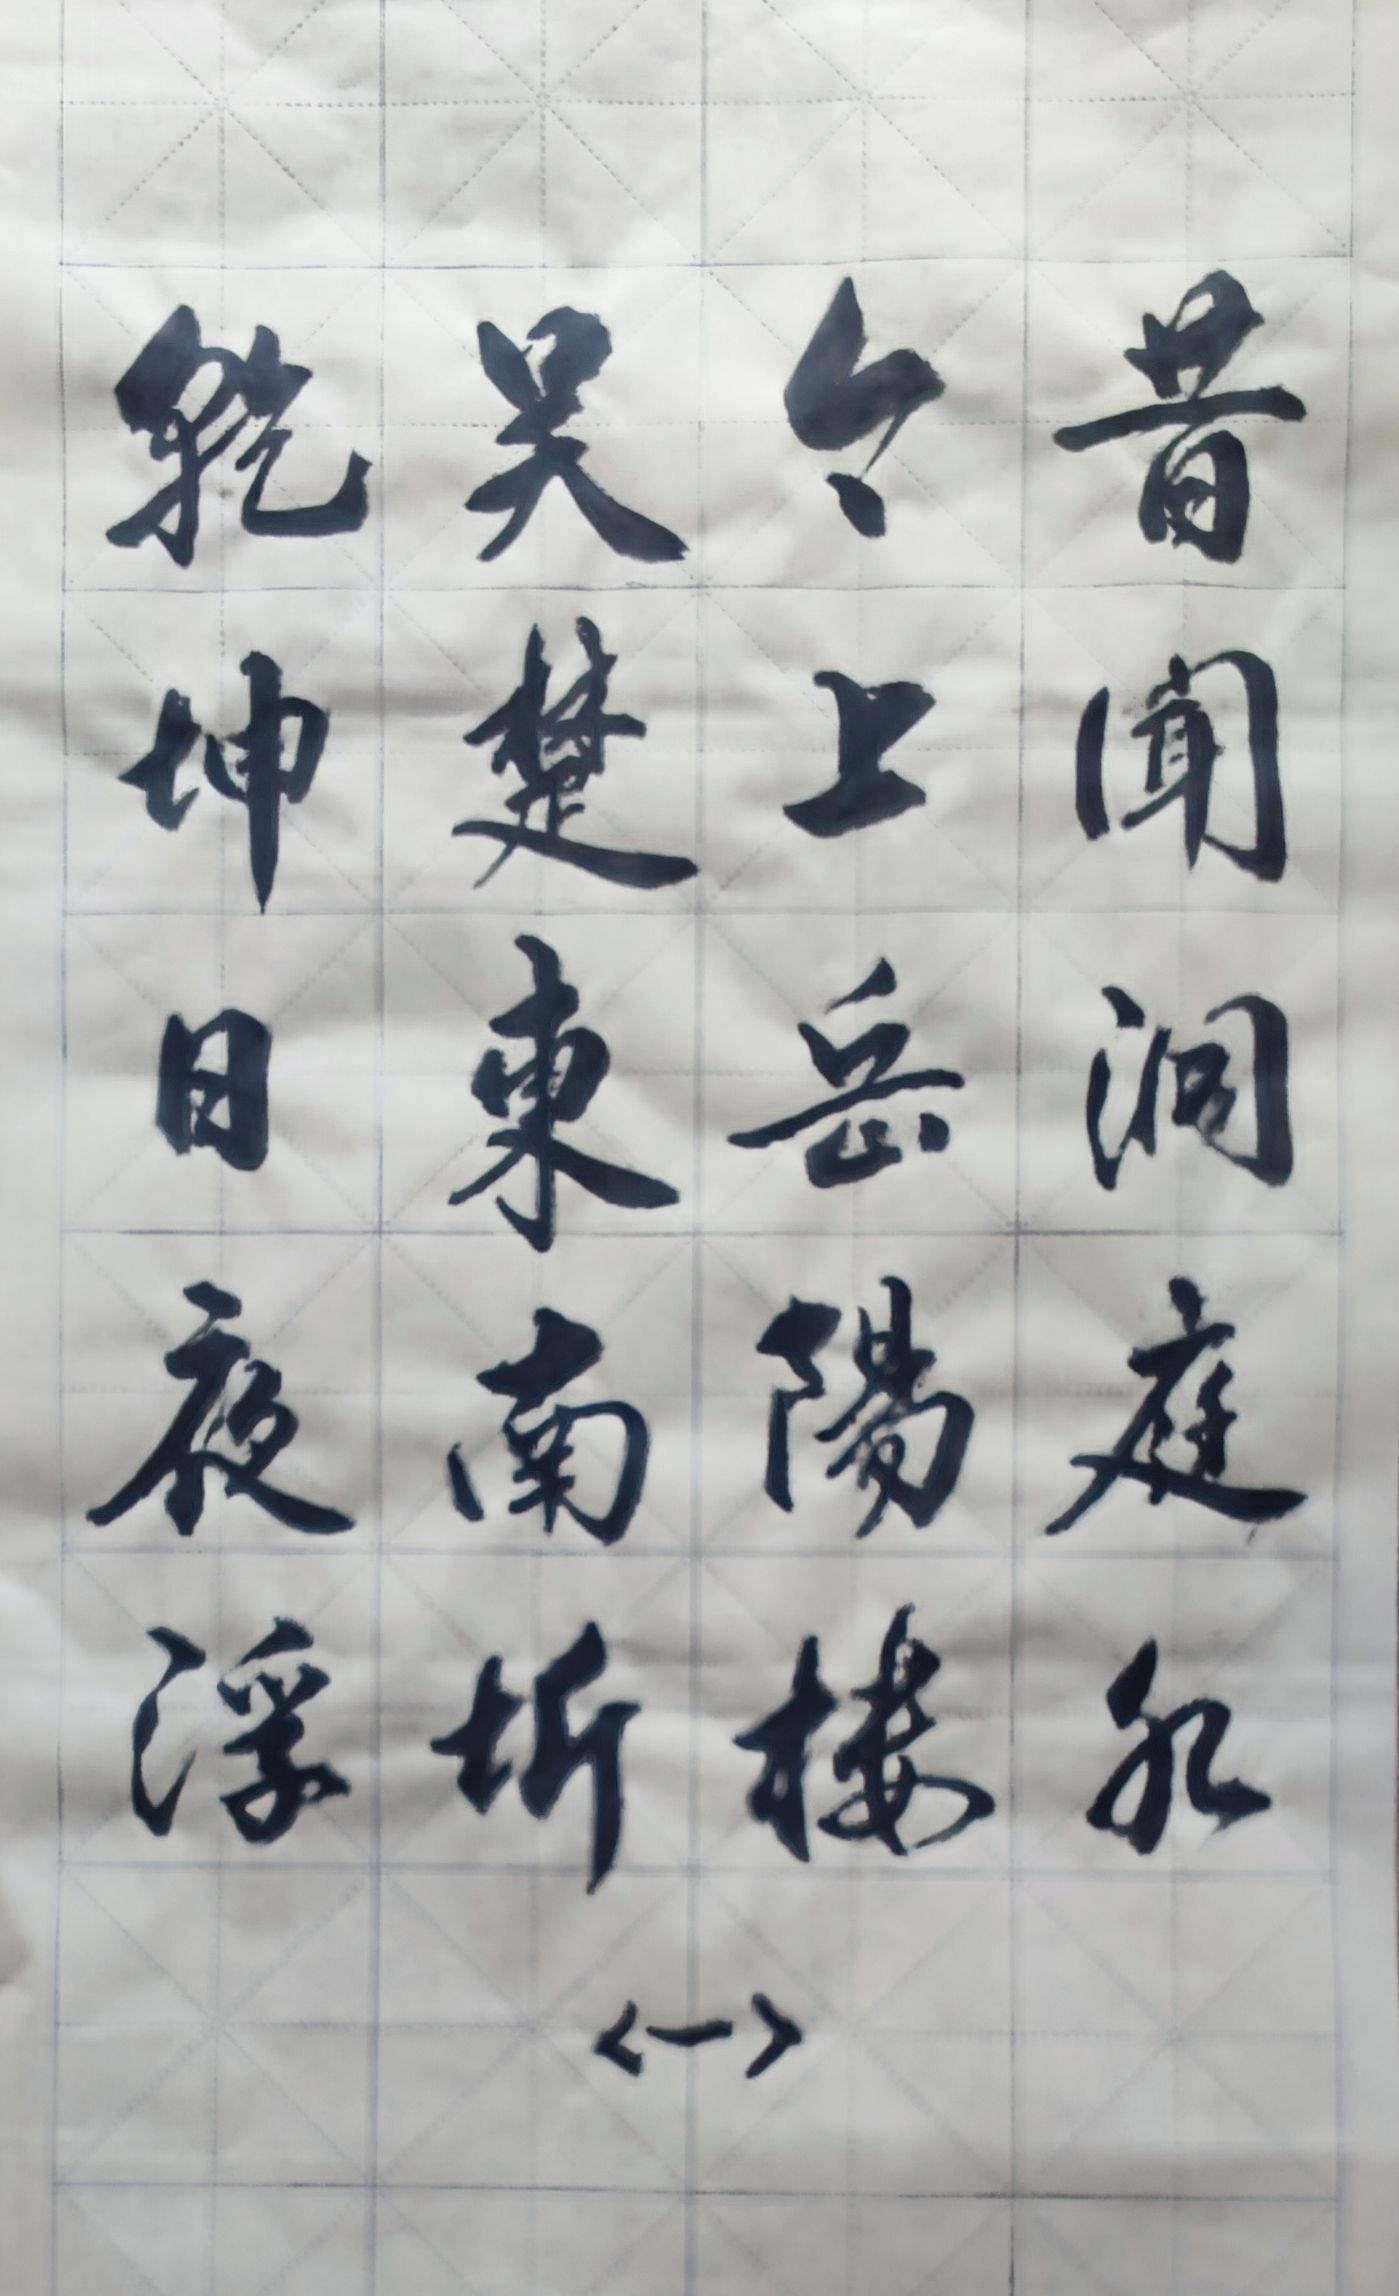 昔聞洞庭水
今上岳陽樓
吴楚東南坼
乾坤日夜浮
<一>